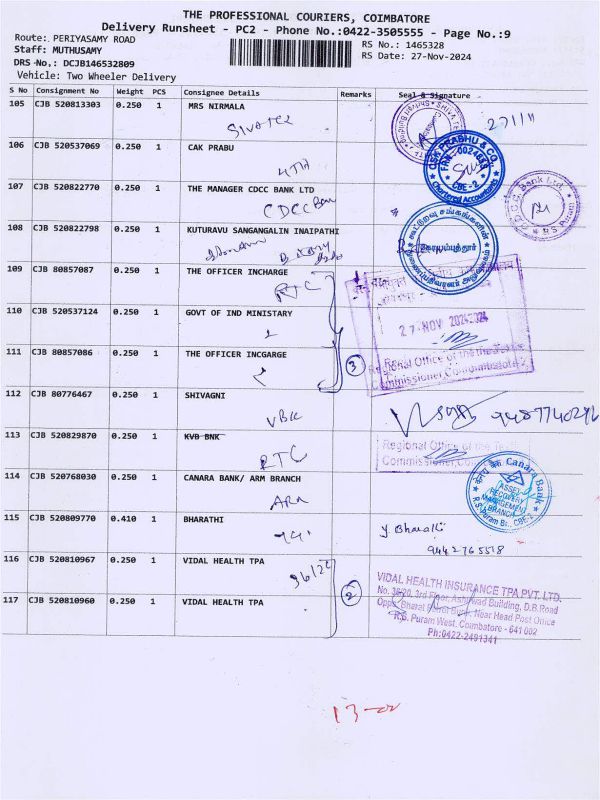 THE PROFESSIONAL COURIERS, COIMBATORE
Delivery Runsheet - PC2 - Phone No.:0422-3505555 - Page No.:9
Route: PERIYASAMY ROAD
RS No.: 1465328
Staff: MUTHUSAMY
RS Date: 27-Nov-2024
DRS No.: DCJB146532809
Vehicle: Two Wheeler Delivery
S No Consignment No Weight PCS Consignee Details Remarks Seal & Signature
105 CJB 520813303 0.250 1 MRS NIRMALA
27/11
106 CJB 520537069 0.250 1 CAK PRABU
CSK PRABHU & CO.
FRN - 002485S
CBE - 2
Chartered Accountants
107 CJB 520822770 0.250 1 THE MANAGER CDCC BANK LTD
CDCC Ban
Bank Ltd.
R S Puram
108 CJB 520822798 0.250 1 KUTURAVU SANGANGALIN INAIPATHI
109 CJB 80857087 0.250 1 THE OFFICER INCHARGE
RTC
110 CJB 520537124 0.250 1 GOVT OF IND MINISTARY
27 NOV 2024
111 CJB 80857086 0.250 1 THE OFFICER INCGARGE
3
Regional Office of the Textile
Commissioner, Coimbatore
112 CJB 80776467 0.250 1 SHIVAGNI
VBK
9487740292
113 CJB 520829870 0.250 1 KVB BNK
RTC
Regional Office of the Textile
Commissioner,
114 CJB 520768030 0.250 1 CANARA BANK/ ARM BRANCH
ARM
Canara Bank
ASSET
RECOVERY
MANAGEMENT
BRANCH
R.S.Puram Br., CBE-2
115 CJB 520809770 0.410 1 BHARATHI
Y Bharathi
9442765518
116 CJB 520810967 0.250 1 VIDAL HEALTH TPA
2
117 CJB 520810960 0.250 1 VIDAL HEALTH TPA
VIDAL HEALTH INSURANCE TPA PVT. LTD.
No. 36/20, 3rd Floor, Ashirwad Building, D.B.Road
Opp. Bharat Petrol Bunk, Near Head Post Office
R.S. Puram West, Coimbatore - 641 002
Ph:0422-2491341